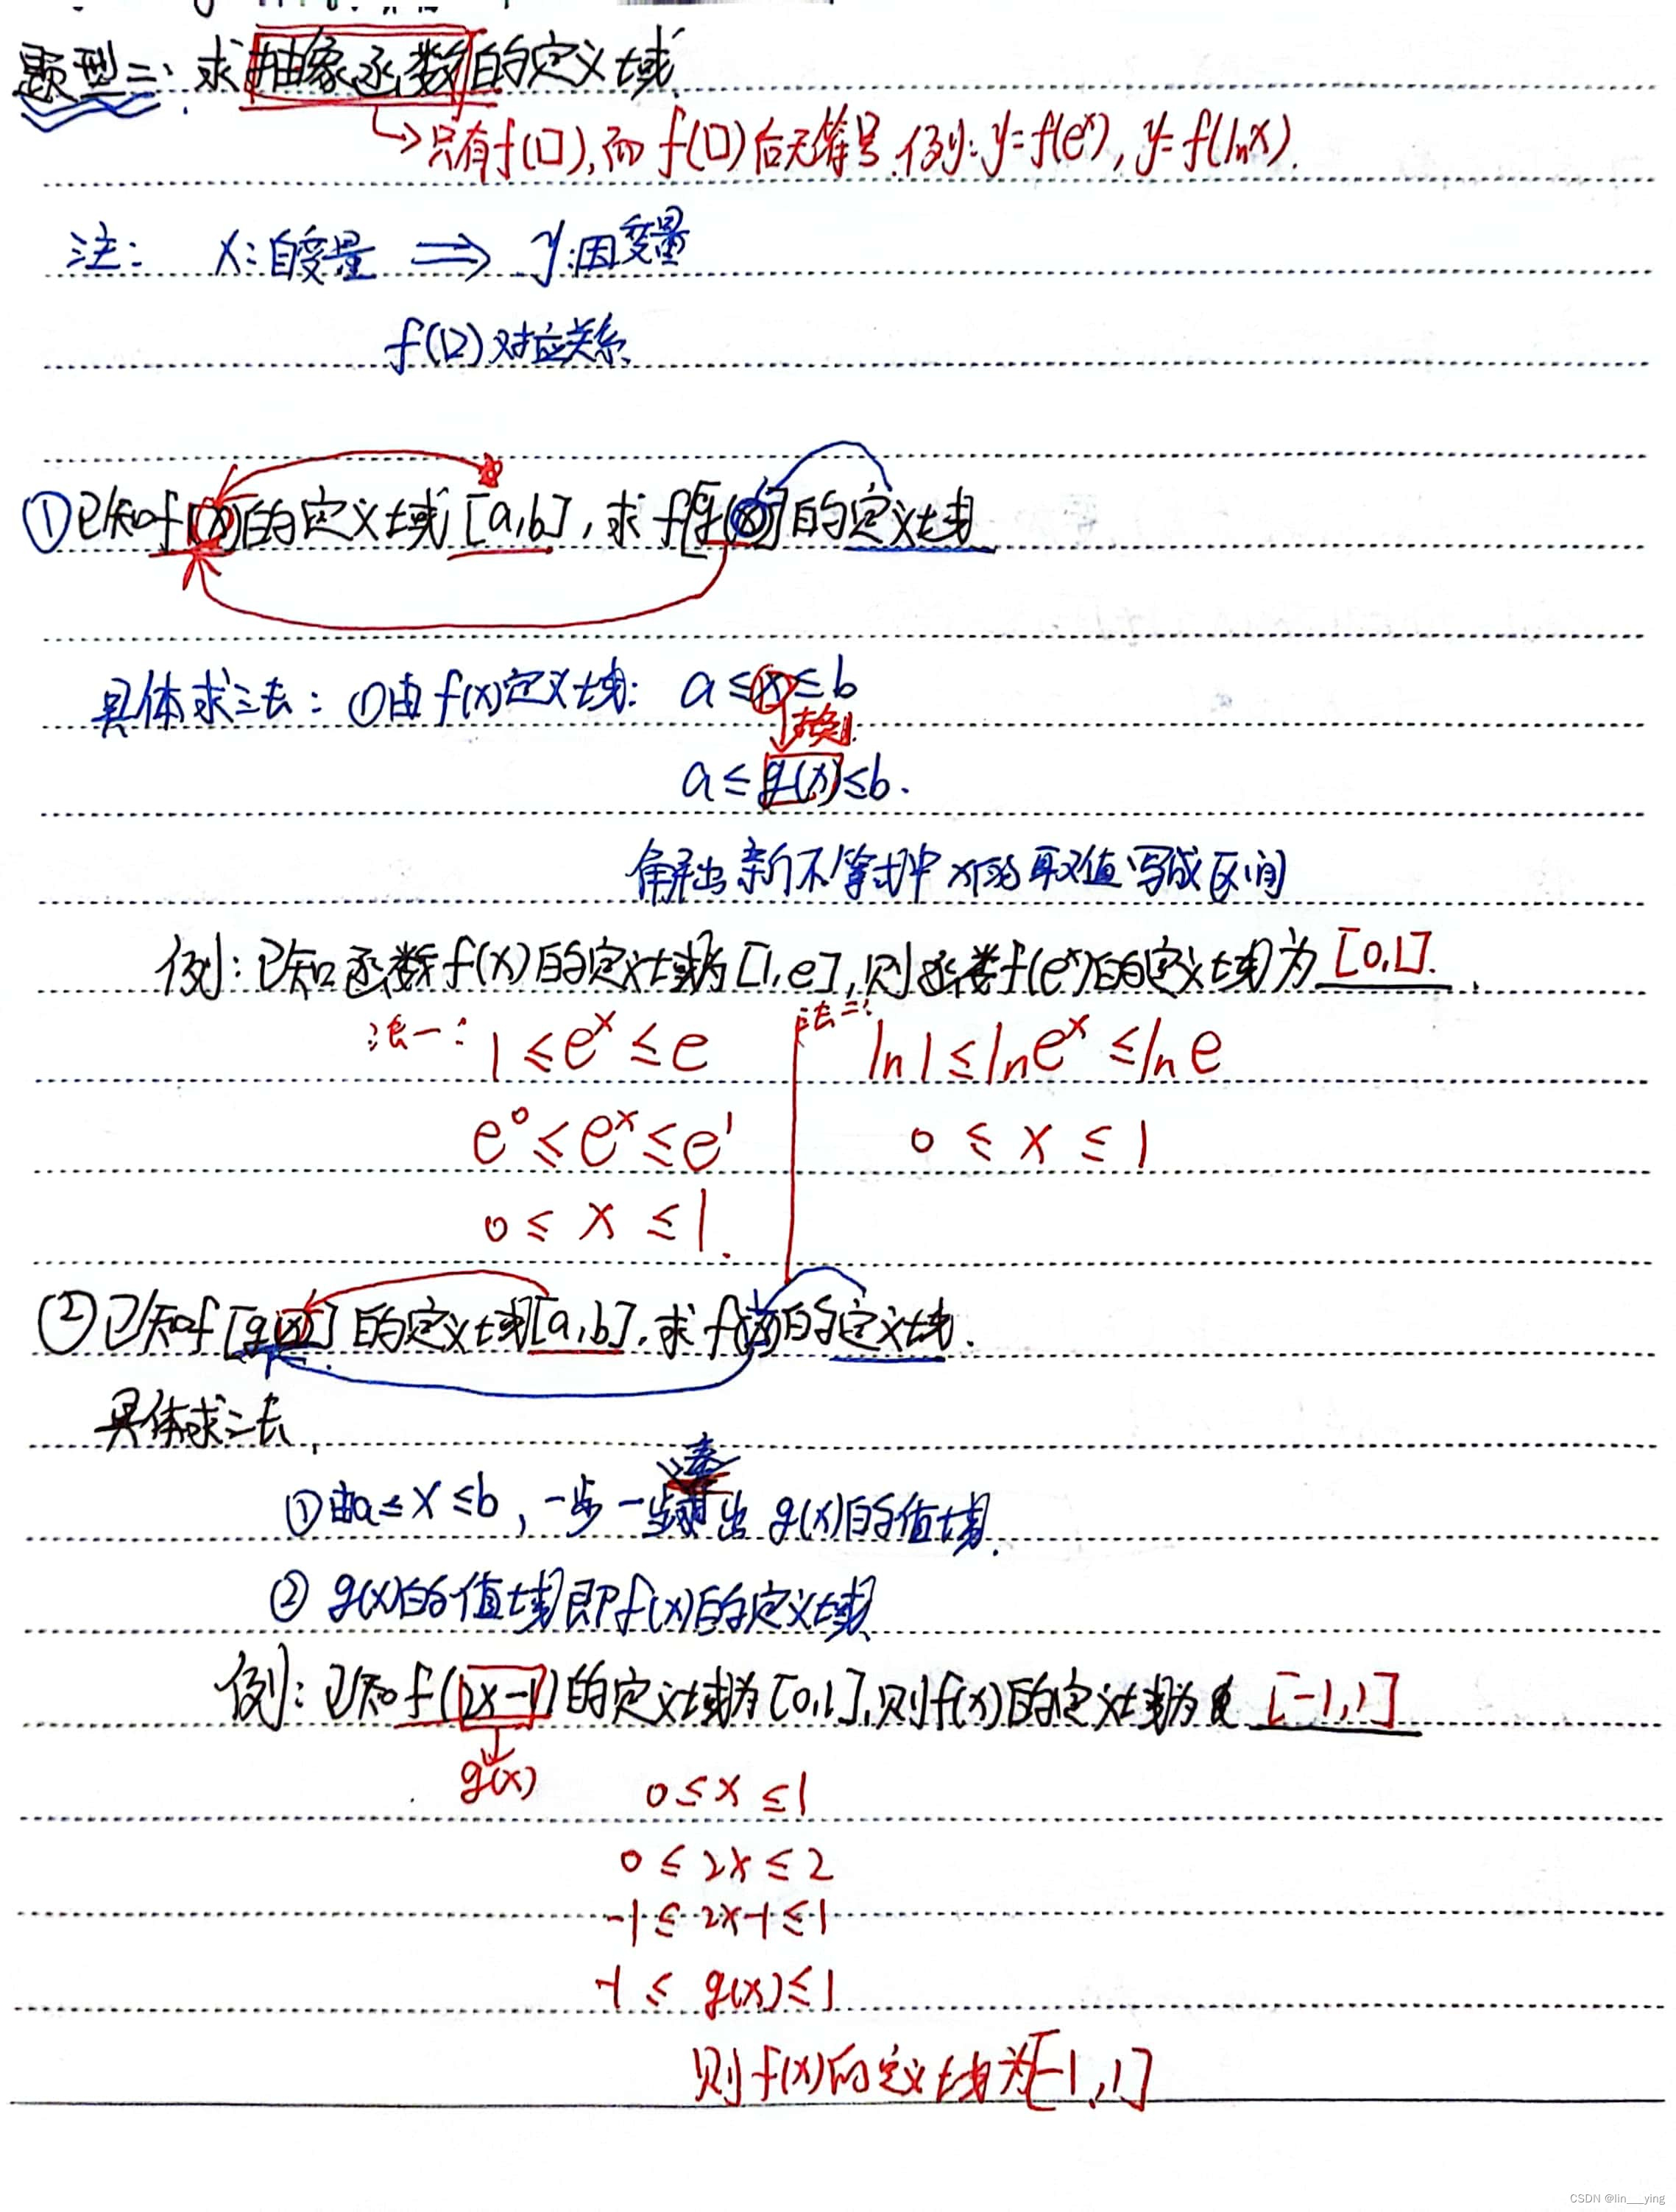 题型二: 求抽象函数的定义域.
只有f(口),而f(口)后无等号.例: y=f(eˣ), y=f(lnx).
注: x:自变量 ⟹ y:因变量
f(口)对应关系.
①已知f(x)的定义域[a,b],求f[g(x)]的定义域
具体求法: ①由f(x)定义域: a≤x≤b
a≤g(x)≤b.
解出新不等式中x的取值写成区间
例:已知函数f(x)的定义域为[1,e],则函数f(eˣ)的定义域为[0,1].
法一: 1≤eˣ≤e
法二: ln1≤lneˣ≤lne
e⁰≤eˣ≤e¹
0≤x≤1
0≤x≤1.
②已知f[g(x)]的定义域[a,b].求f(x)的定义域.
具体求法
①由a≤x≤b,一步一步凑出g(x)的值域.
②g(x)的值域即f(x)的定义域
例:已知f(2x-1)的定义域为[0,1],则f(x)的定义域为[-1,1]
g(x)
0≤x≤1
0≤2x≤2
-1≤2x-1≤1
-1≤g(x)≤1
则f(x)的定义域为[-1,1]
CSDN @lin___ying